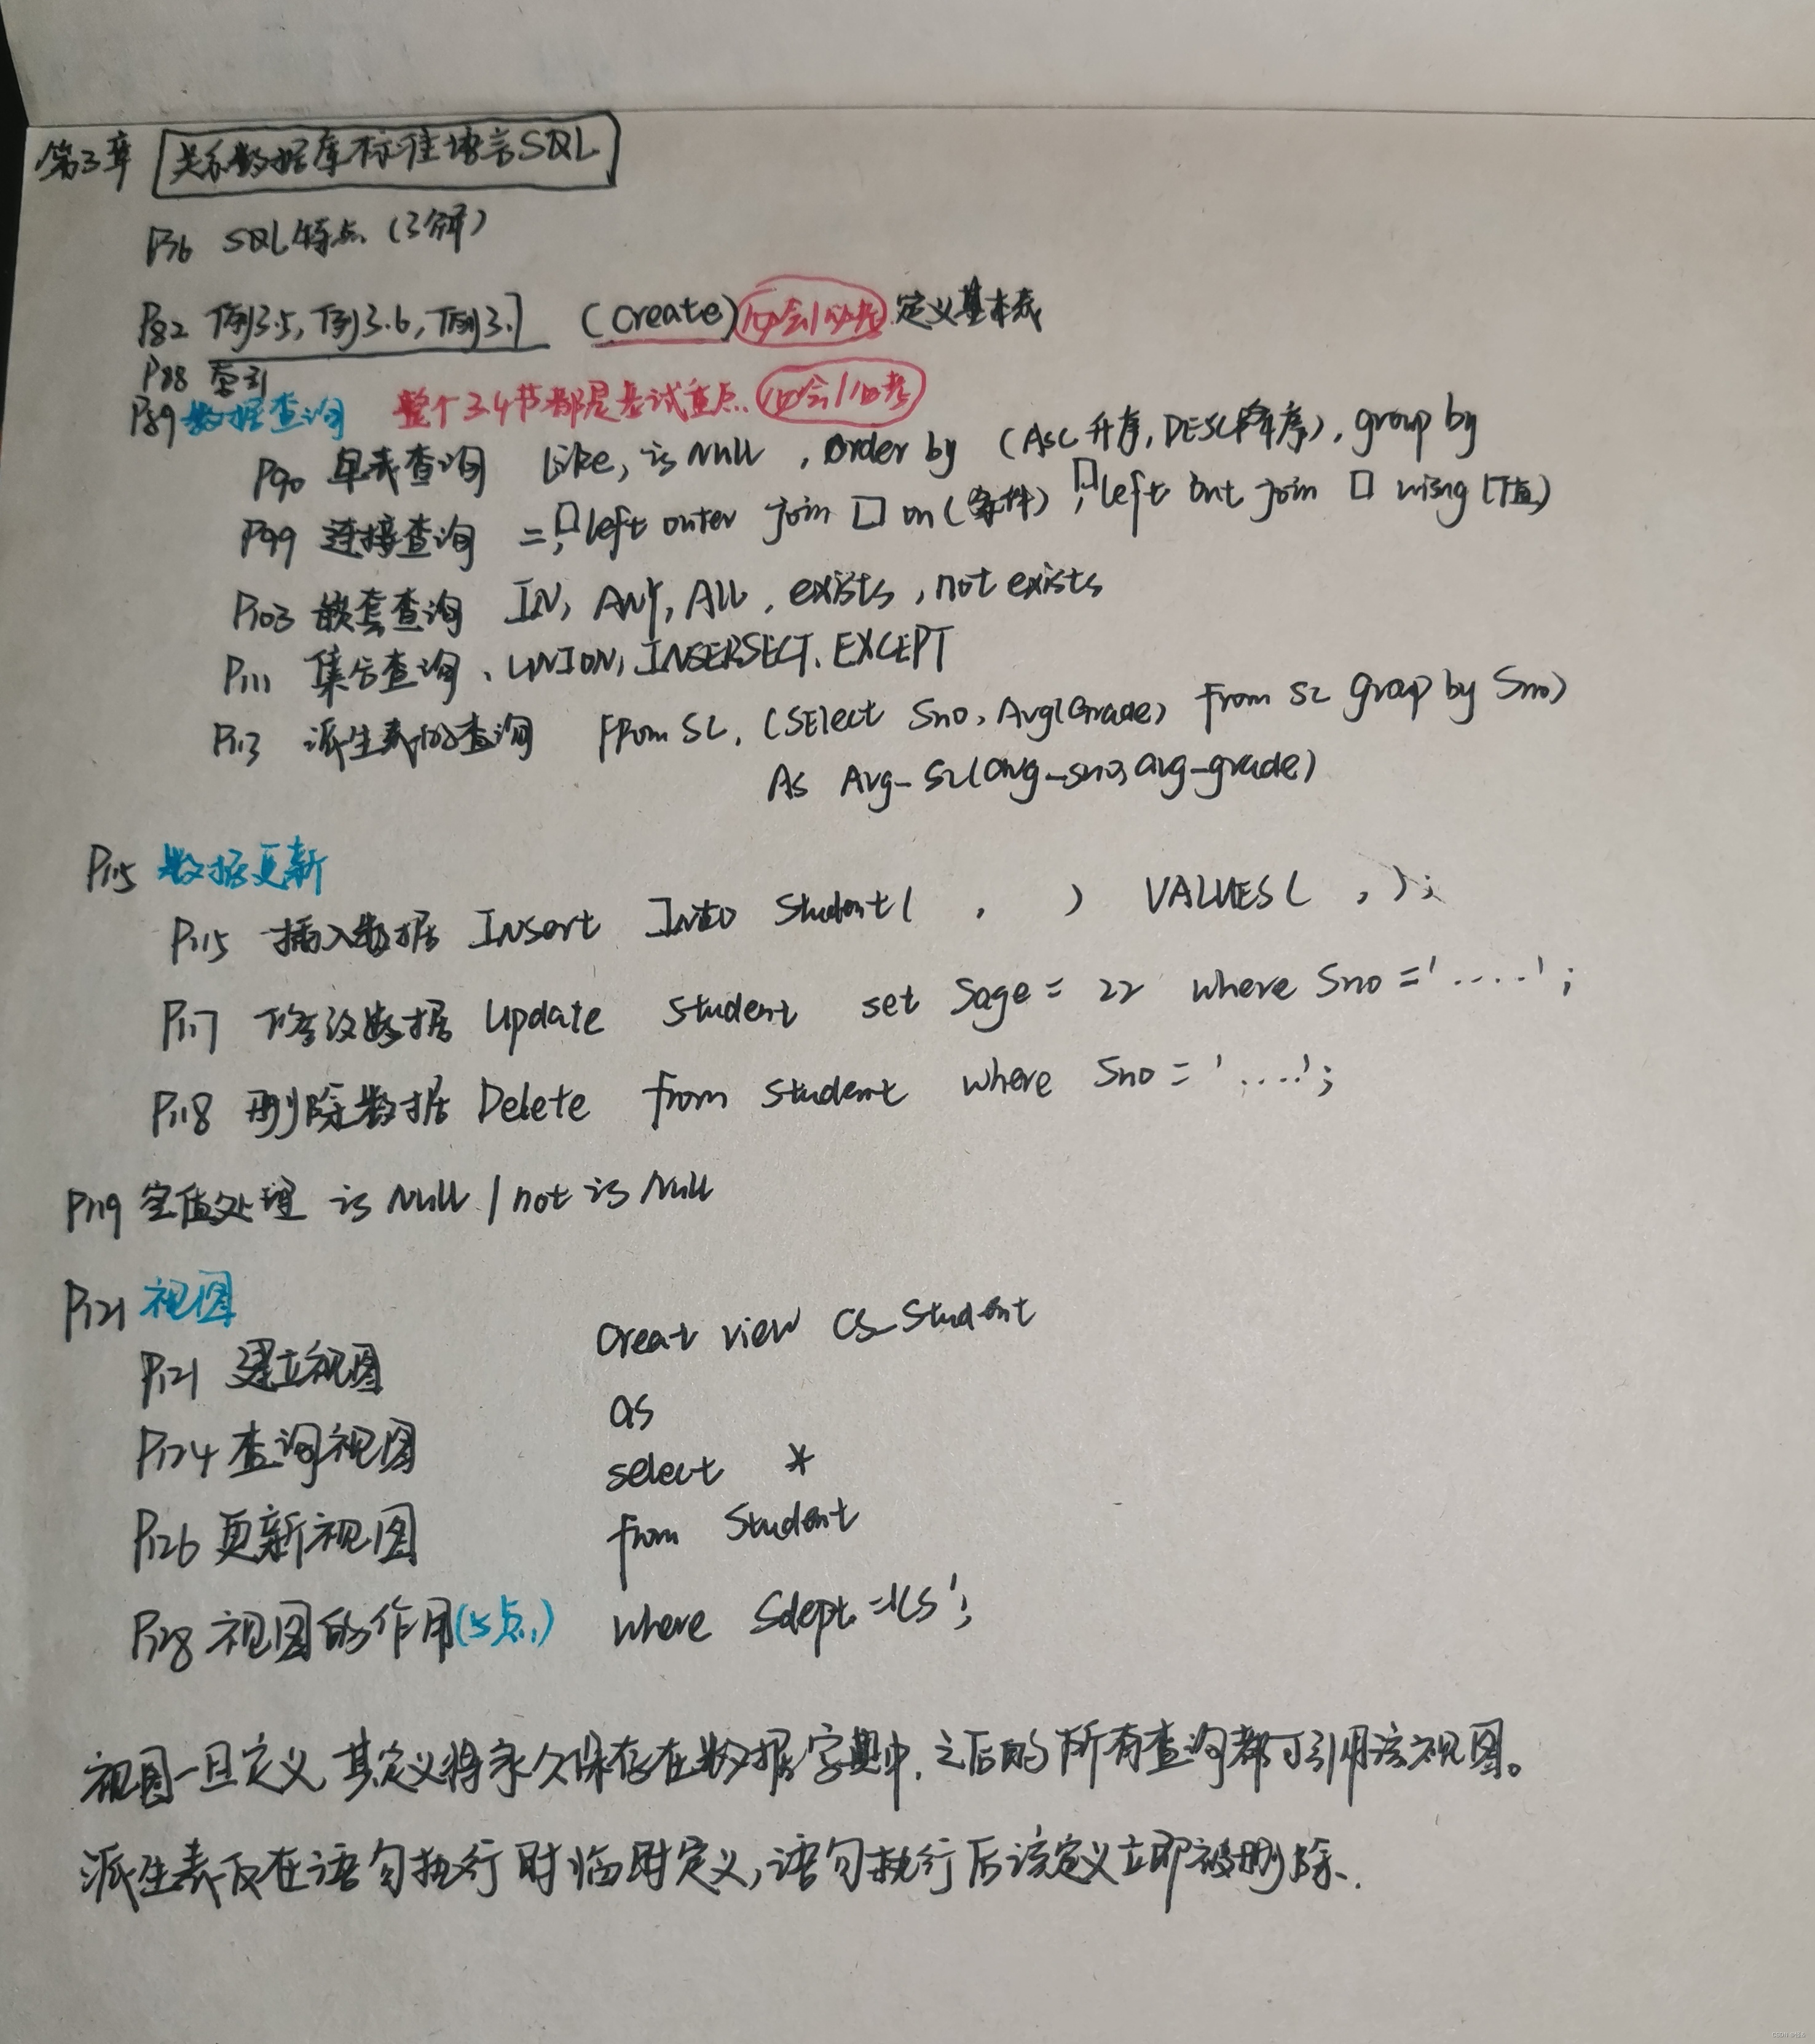 第3章 关系数据库标准语言SQL
P76 SQL特点(了解)
P82 例3.5,例3.6,例3.7 (Create) 必会/必考 定义基本表
P88 索引
P89 数据查询 整个3.4节都是考试重点. 必会/必考
P90 单表查询 Like, is Null, Order by (ASC升序,DESC降序), group by
P99 连接查询 =, □left outer join □ on(条件), □left out join □ using(值)
P103 嵌套查询 IN, ANY, ALL, exists, not exists
P111 集合查询、UNION, INSERSECT, EXCEPT
P113 派生表的查询 From SC, (SElect Sno, Avg(Grade) From SC group by Sno)
As Avg-SC(avg-sno, avg-grade)
P115 数据更新
P115 插入数据 Insert Into Student( , ) VALUES( , );
P117 修改数据 Update Student set Sage = 22 where Sno = '.....';
P118 删除数据 Delete from Student where Sno = '....';
P119 空值处理 is Null / not is Null
P121 视图
P121 建立视图 Creat view CS_Student
as
P124 查询视图 select *
P126 更新视图 from Student
P128 视图的作用(5点) where Sdept='CS';
视图一旦定义,其定义将永久保存在数据字典中,之后的所有查询都可引用该视图。
派生表仅在语句执行时临时定义,语句执行后该定义立即被删除.